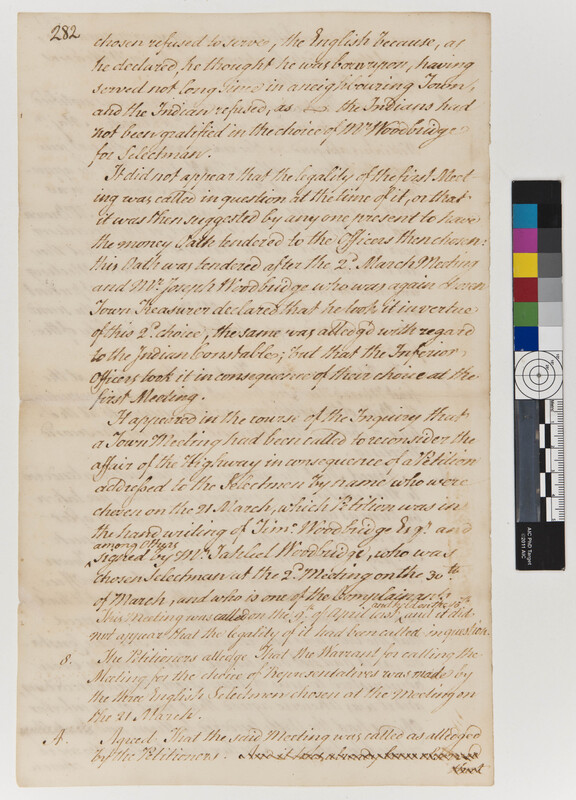 282
chosen refused to serve, the English because, as
he declared, he thought he was bore upon, having
served not long since in a neighbouring Town,
and the Indian refused, as the Indians had
not been gratified in the choice of Mr Woodbridge
for Selectman.
It did not appear that the legality of the first Meet
ing was called in question at the time of it, or that
it was then suggested by any one present to have
the money Oath tendered to the Officers then chosen:
this Oath was tendered after the 2d. March Meeting
and Mr. Joseph Woodbridge who was again chosen
Town Treasurer declared that he took it in vertue
of this 2d. choice; the same was alledg'd with regard
to the Indian Constable; but that the Inferior
Officers took it in consequence of their choice at the
first Meeting.
It appeared in the course of the Inquiry that
a Town Meeting had been called to reconsider the
affair of the Highway in consequence of a Petition
addressed to the Selectmen by name who were
chosen on the 21 March, which Petition was in
the hand writing of Timo. Woodbridge Esqr. and
among others
signed by Mr. Jahleel Woodbridge, who was
chosen Selectman at the 2d. Meeting on the 30th
of March, and who is one of the Complainants
This Meeting was called on the 9th of April last, and it did
not appear that the legality of it had been called in question.
8. The Petitioners alledge That the Warrant for calling the
Meeting for the choice of Representatives was made by
the three English Selectmen chosen at the Meeting on
the 21 March.
A. Agreed. That the said Meeting was called as alledged
by the Petitioners. And it has already been